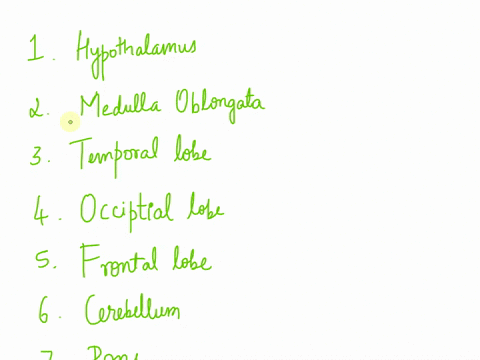 1. Hypothalamus
2. Medulla Oblongata
3. Temporal lobe
4. Occiptial lobe
5. Frontal lobe
6. Cerebellum
7. Pons